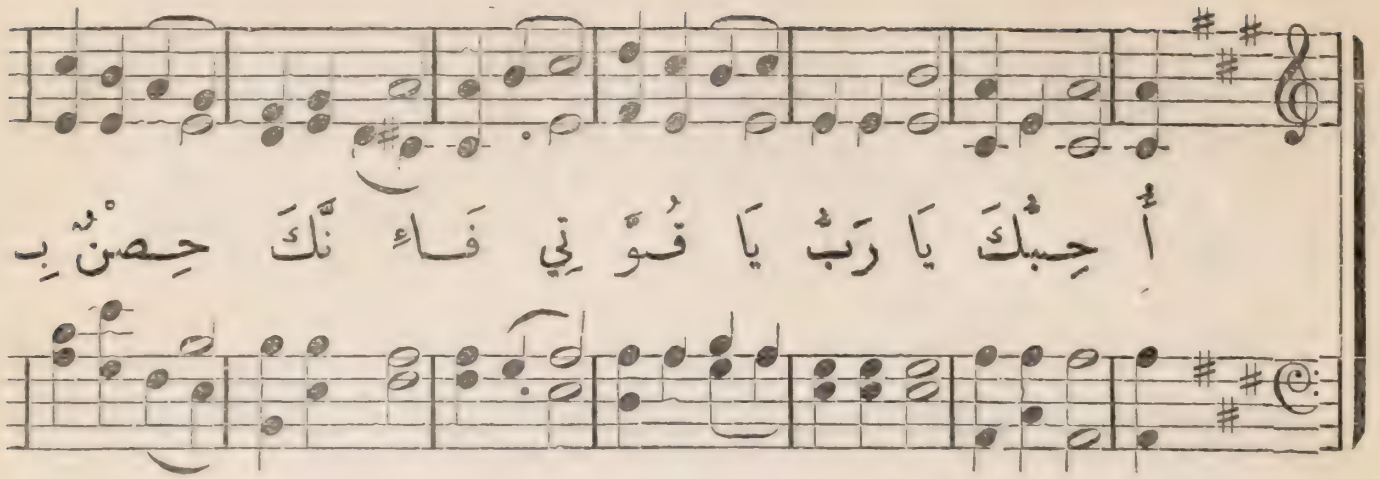 أُ حِبُّكَ يَا رَبُّ يَا قُوَّ تِي فَاءِ نَّكَ حِصْنٌ بِ